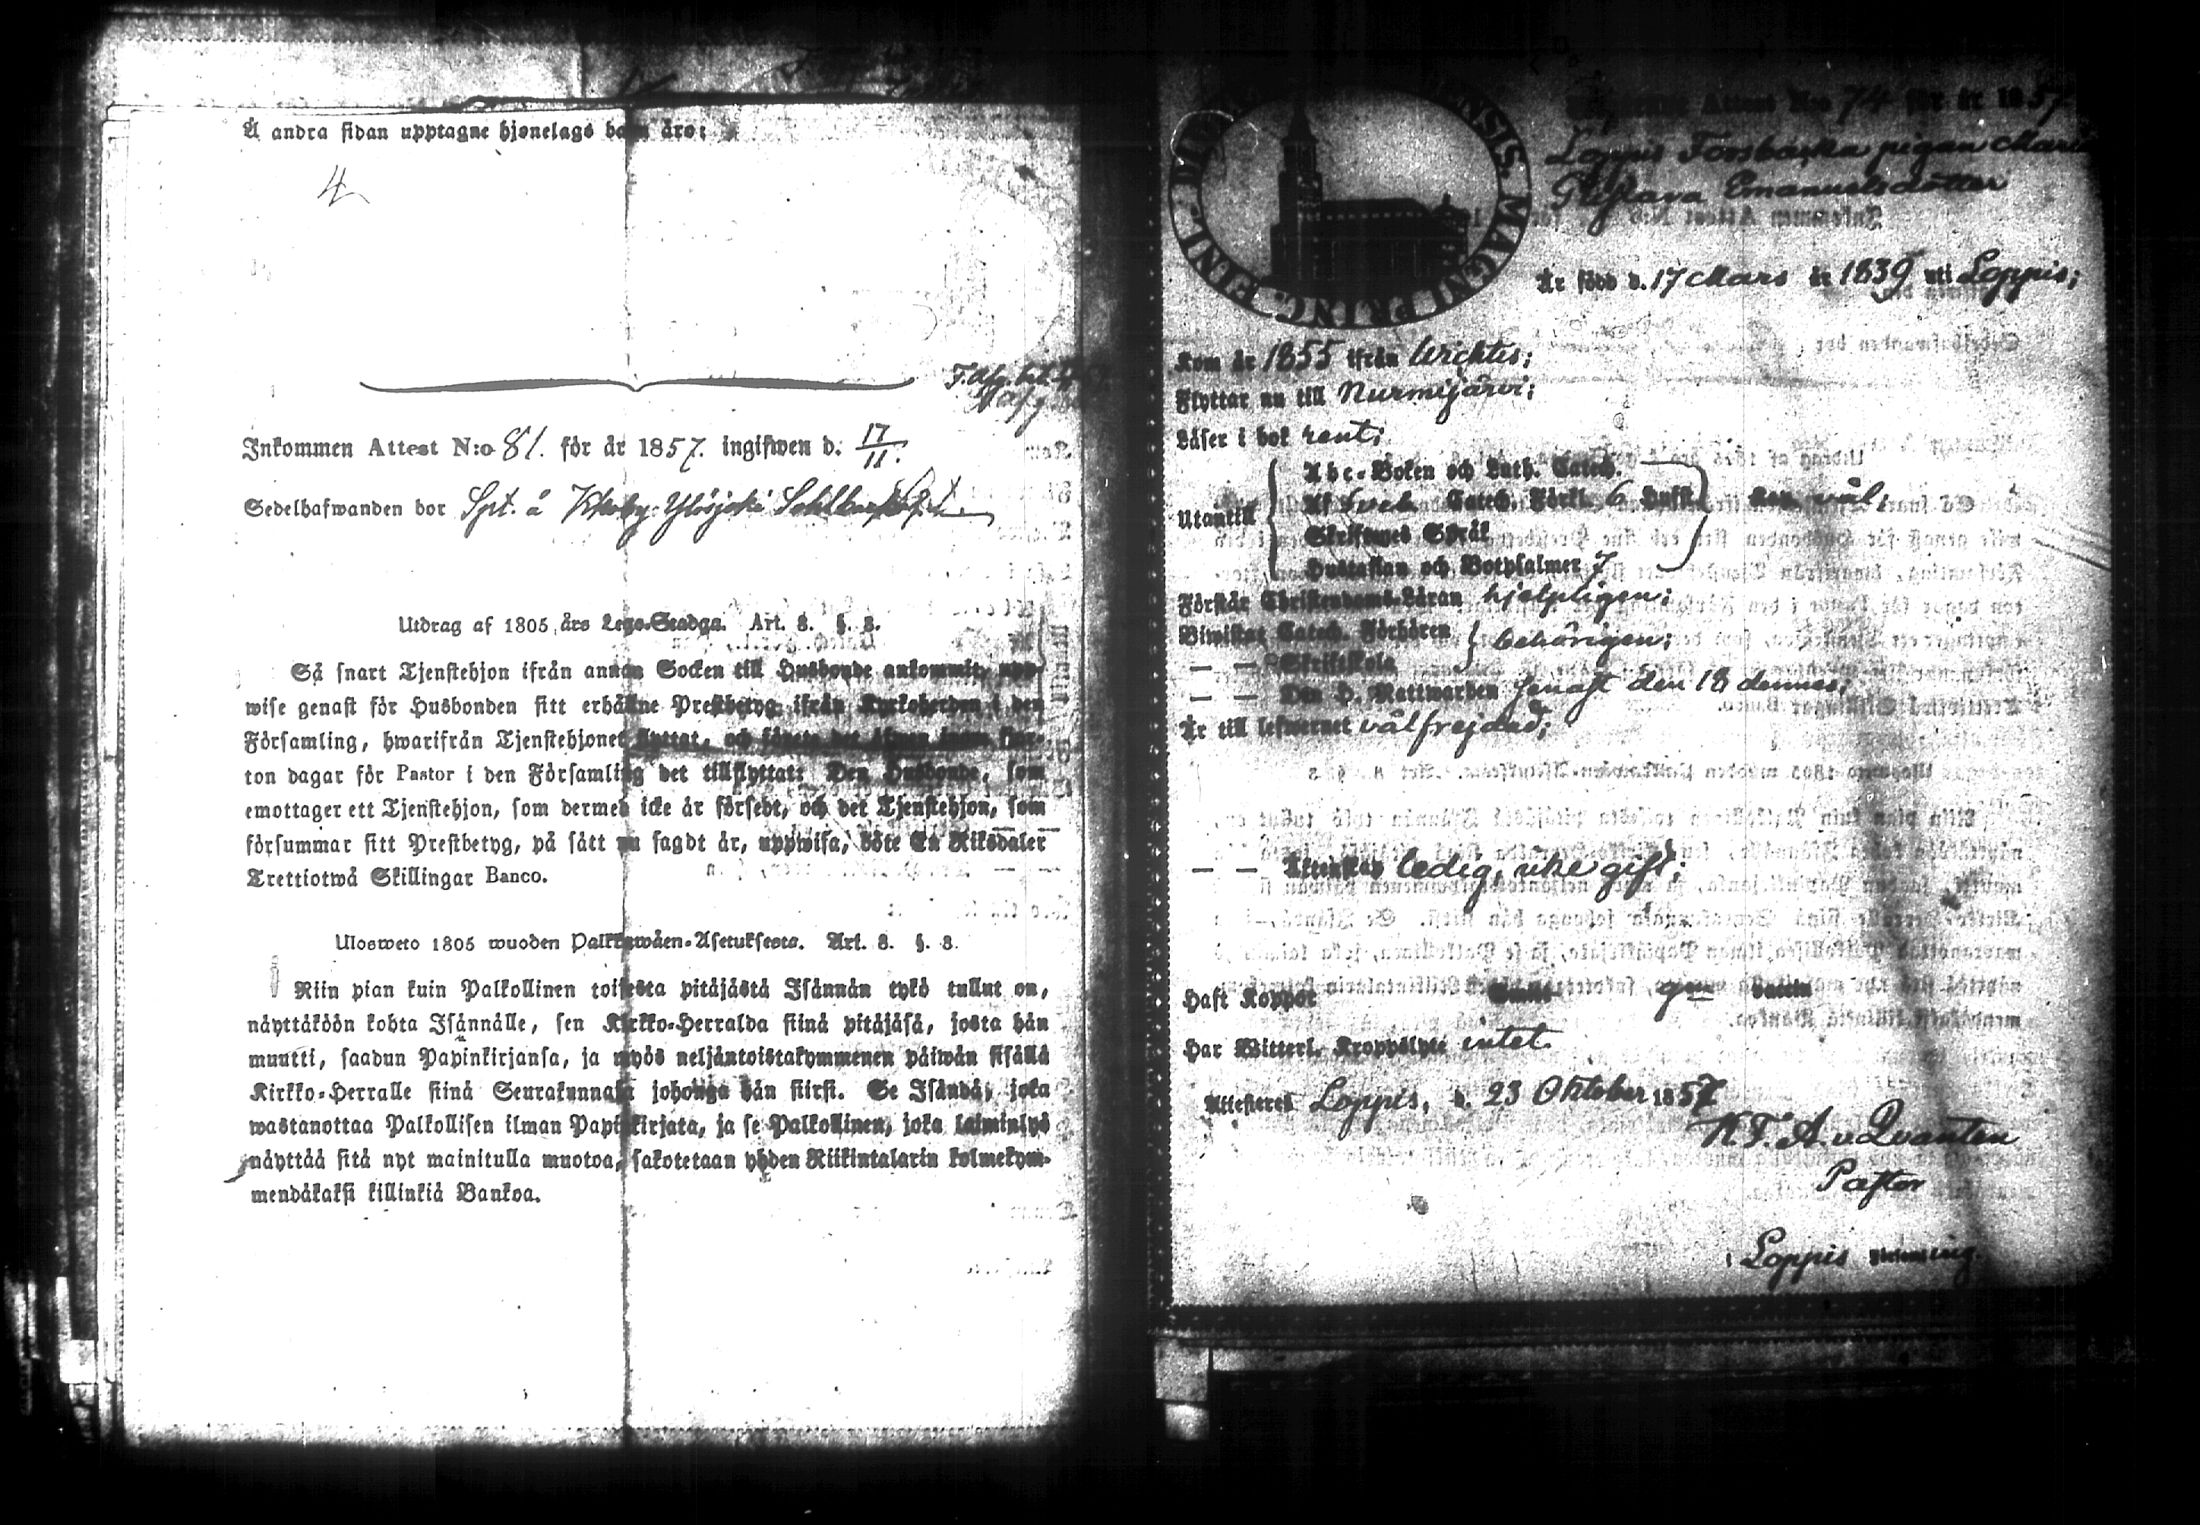 Å andra sidan upptagne hjonelags barn äro:
4
Inkommen Attest N:o 81. för år 1857. ingifwen d. 17/11.
Sedelhafwanden bor Spt. å
Utdrag af 1805 års Lego-Stadga. Art. 8. §. 8.
Så snart Tjenstehjon ifrån annan Socken till Husbonde ankommit, upp-
wise genast för Husbonden sitt erhållne Prestbetyg ifrån Kyrkoherden i den
Församling, hwarifrån Tjenstehjonet flyttat, och sånom det äfwen inom fjor-
ton dagar för Pastor i den Församling det tillflyttat: Den Husbonde, som
emottager ett Tjenstehjon, som dermed icke är försedt, och det Tjenstehjon, som
försummar sitt Prestbetyg, på sätt nu sagdt är, uppwisa, böte En Riksdaler
Trettiotwå Skillingar Banco.
Uloswеto 1805 wuoden Palkkawäen-Asetuksesta. Art. 8. §. 8.
Niin pian kuin Palkollinen toisesta pitäjästä Isännän tykö tullut on,
näyttäköön kohta Isännälle, sen Kirkko-Herralda siinä pitäjäsä, josta hän
muutti, saadun Papinkirjansa, ja myös neljäntoistakymmenen päiwän sisällä
Kirkko-Herralle siinä Seurakunnasa johonga hän siirsi. Se Isändä, joka
wastanottaa Palkollisen ilman Papinkirjata, ja se Palkollinen, joka laiminlyö
näyttää sitä nyt mainitulla muotoa, sakotetaan yhden Riikintalarin kolmekym-
mendäkaksi killinkiä Bankoa.
ENSIS. MAGNI PRINC. FINL.
Attest N:o 74 för år 1857
Loppis Forsbacka pigan Maria
Gustava Emanuelsdotter
Är född d. 17 Mars år 1839 uti Loppis;
Kom år 1855 ifrån Wichtis;
Flyttar nu till Nurmijärvi;
Läser i bok rent;
Utantill
Abc-Boken och Luth. Catech.
Af Sveb. Catech. Förkl. 6 Hufst. Kan väl;
Skriftenes Språk
Hustaflan och Botpsalmer 7
Förstår Christendoms-Läran hjelpligen;
Biwistat Catech. Förhören
— — Skriftskola
behörigen;
— — Den H. Nattwarden senast den 18 dennes;
Är till lefwernet välfrejdad;
— — Äktenskap ledig, icke gift;
Haft Koppor
Har Witterl. Kroppslyte intet.
Attesteras Loppis, d. 23 Oktober 1857
K F. A. v Qvanten
Pastor
i Loppis Församling.